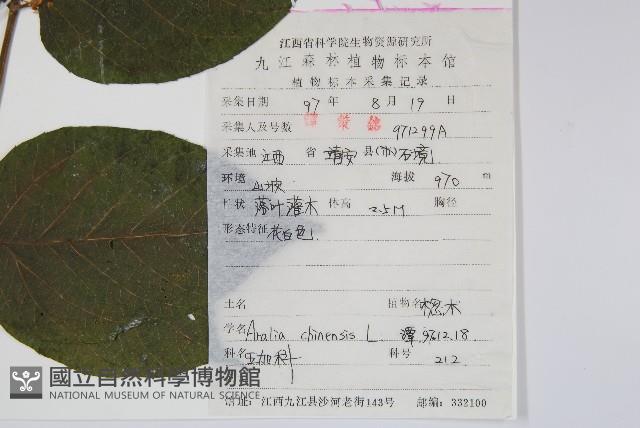 江西省科学院生物资源研究所
九江森林植物标本馆
植物标本采集记录
采集日期 97 年 8 月 19 日
采集人及号数 971299A
采集地 江西 省 靖安 县(市)
环境 山坡 海拔 970 m
性状 落叶灌木 体高 2.5M 胸径
形态特征 花白色
土名 植物名 楤木
学名 Aralia chinensis L 谭 97.12.18
科名 五加科 科号 212
馆址:江西九江县沙河老街143号 邮编:332100
國立自然科學博物館
NATIONAL MUSEUM OF NATURAL SCIENCE